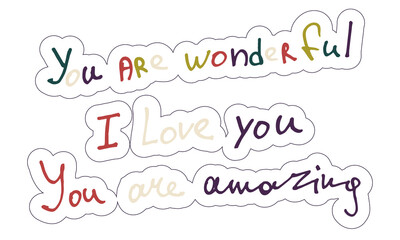 You ARe wonderful
I Love you
You are amazing